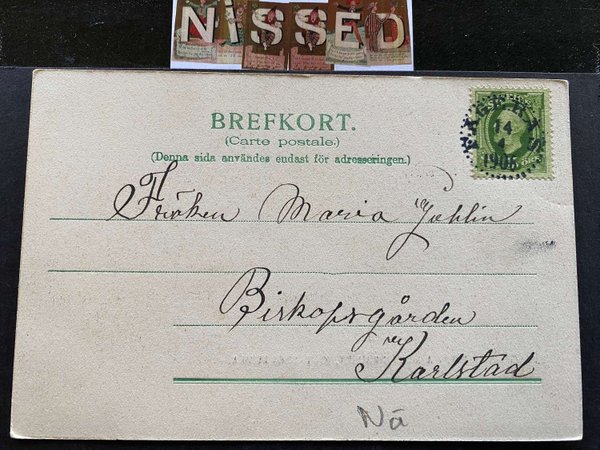 NiSSED
BREFKORT.
(Carte postale.)
(Denna sida användes endast för adresseringen.)
14
4
1905
Fröken Maria
Biskopsgården
Karlstad
Nä